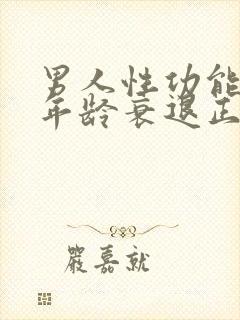 男人性功能
年龄衰退正
严嘉就